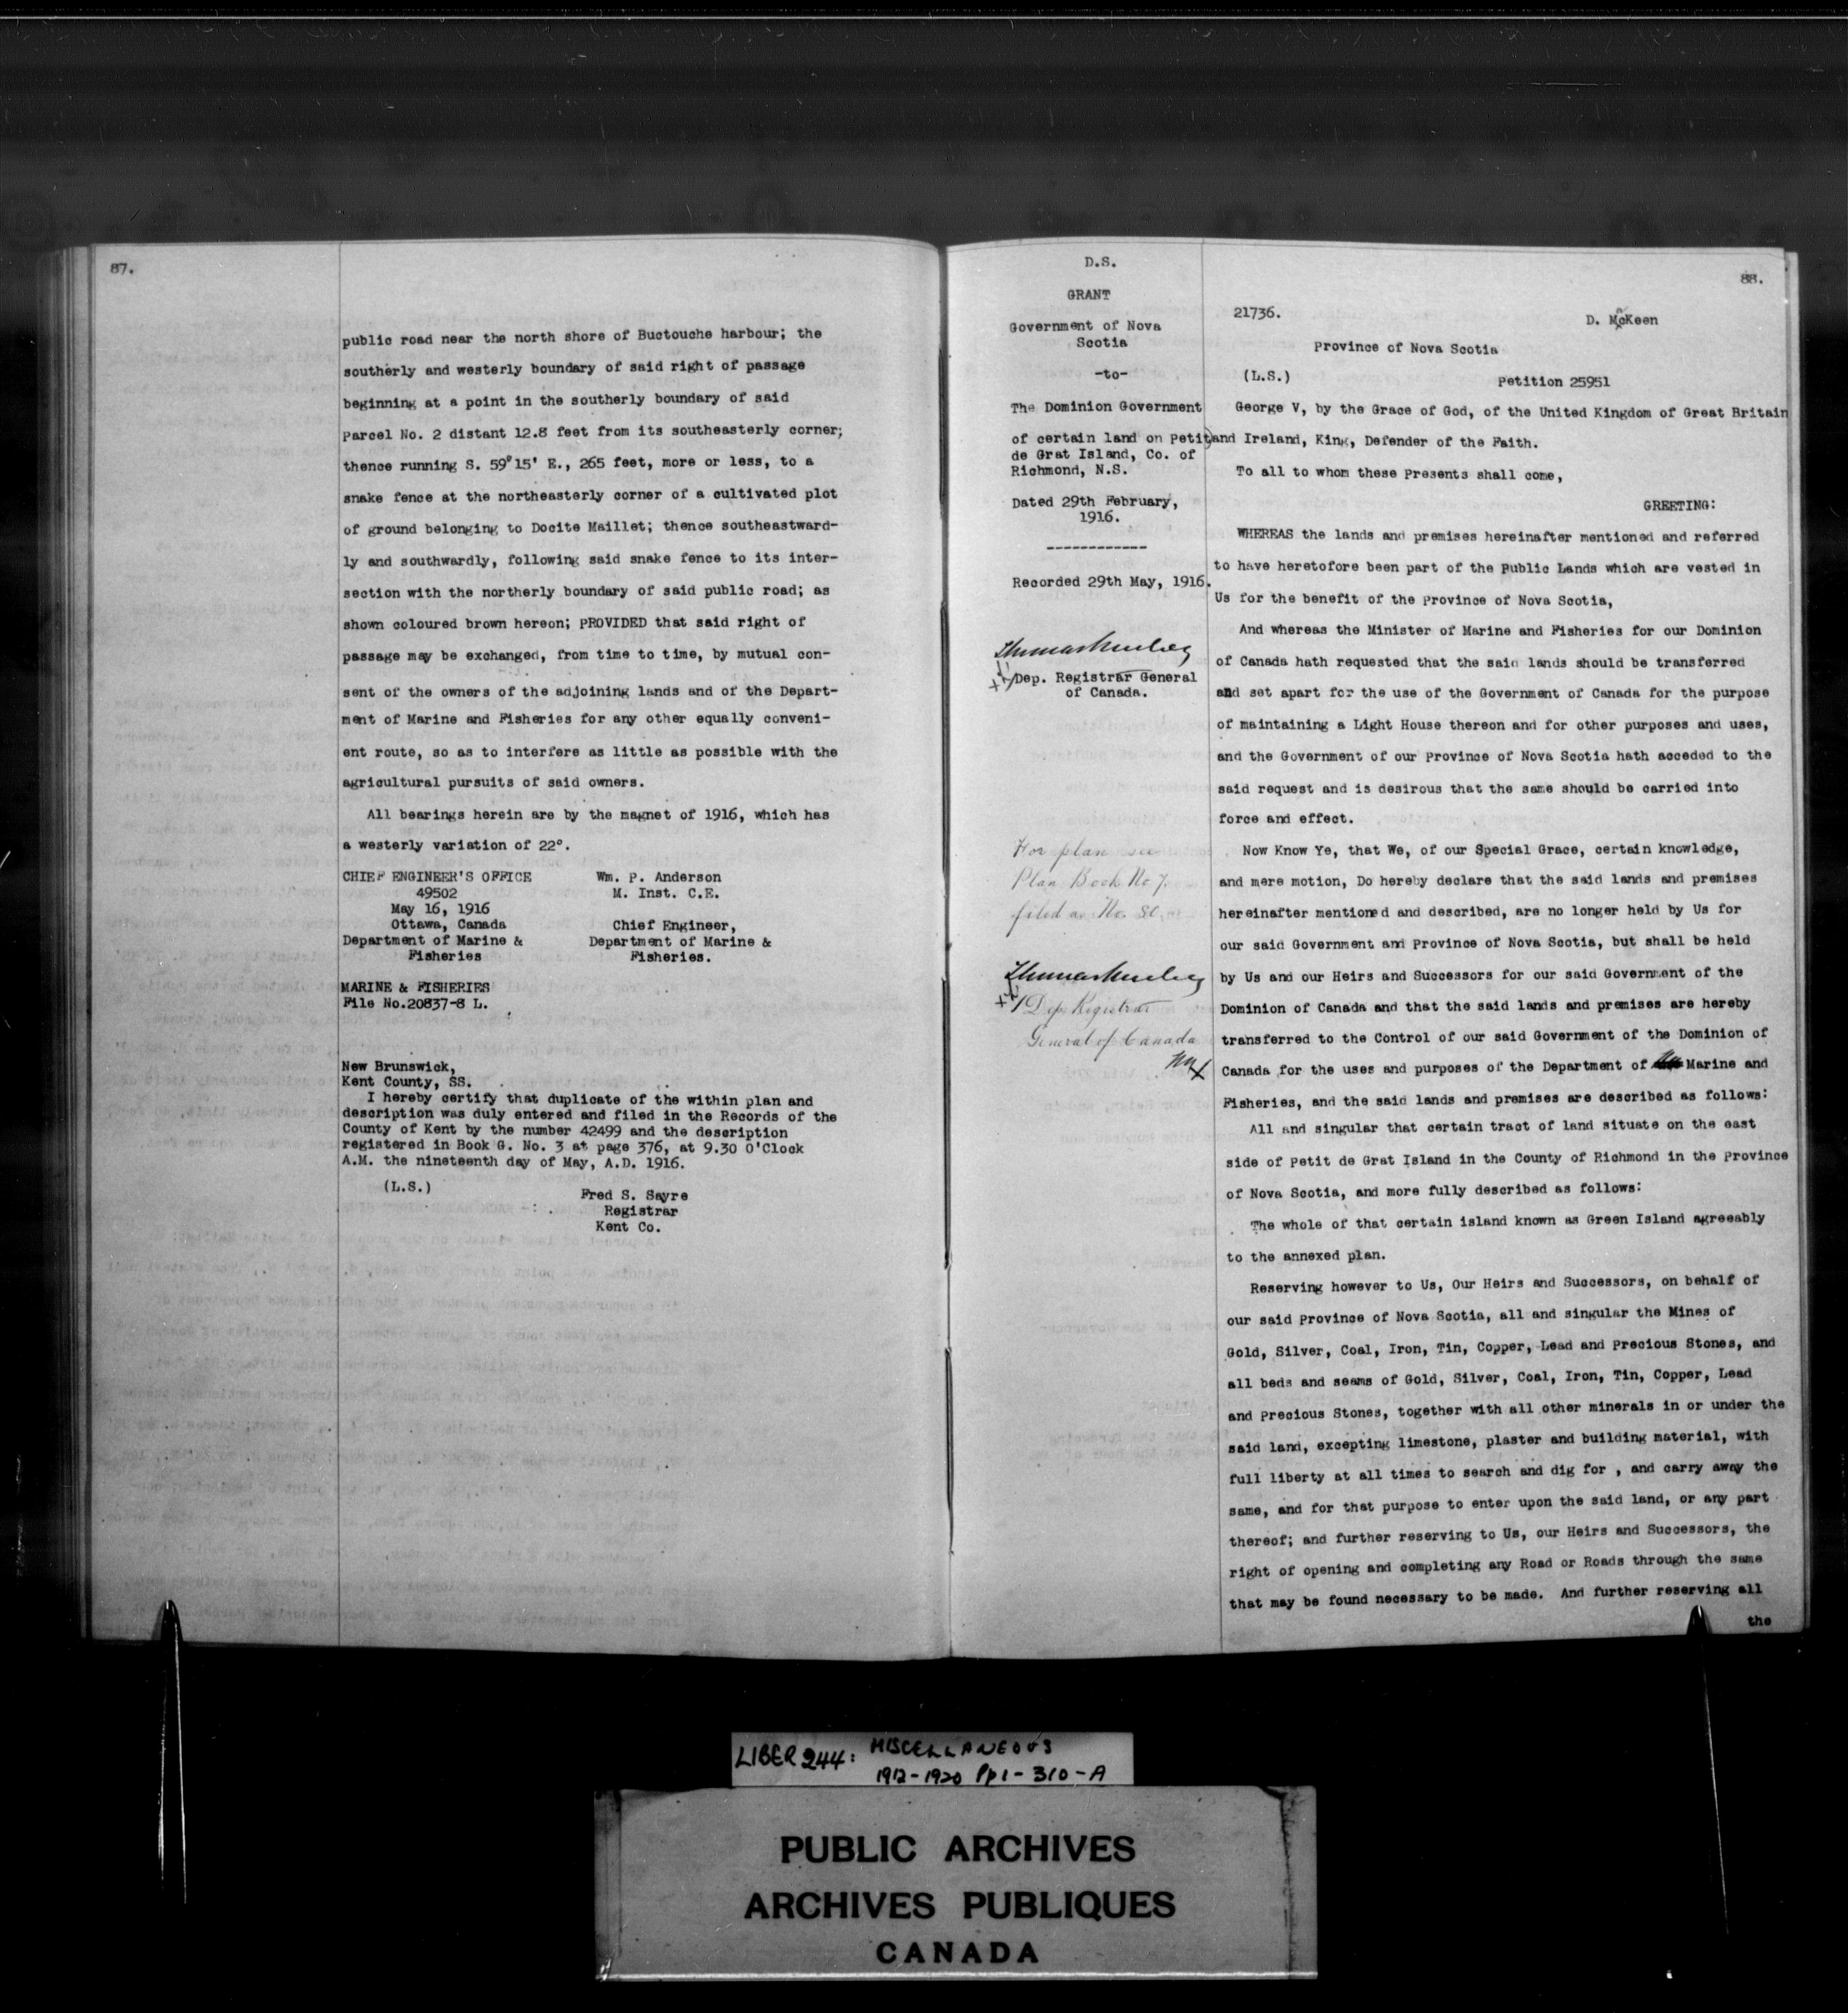 87.
public road near the north shore of Buctouche harbour; the
southerly and westerly boundary of said right of passage
beginning at a point in the southerly boundary of said
parcel No. 2 distant 12.8 feet from its southeasterly corner;
thence running S. 59°15' E., 265 feet, more or less, to a
snake fence at the northeasterly corner of a cultivated plot
of ground belonging to Docite Maillet; thence southeastward-
ly and southwardly, following said snake fence to its inter-
section with the northerly boundary of said public road; as
shown coloured brown hereon; PROVIDED that said right of
passage may be exchanged, from time to time, by mutual con-
sent of the owners of the adjoining lands and of the Depart-
ment of Marine and Fisheries for any other equally conveni-
ent route, so as to interfere as little as possible with the
agricultural pursuits of said owners.
All bearings herein are by the magnet of 1916, which has
a westerly variation of 22°.
CHIEF ENGINEER'S OFFICE
49502
May 16, 1916
Ottawa, Canada
Department of Marine &
Fisheries
Wm. P. Anderson
M. Inst. C.E.
Chief Engineer,
Department of Marine &
Fisheries.
MARINE & FISHERIES
File No.20837-8 L.
New Brunswick,
Kent County, SS.
I hereby certify that duplicate of the within plan and
description was duly entered and filed in the Records of the
County of Kent by the number 42499 and the description
registered in Book G. No. 3 at page 376, at 9.30 O'Clock
A.M. the nineteenth day of May, A.D. 1916.
(L.S.)
Fred S. Sayre
Registrar
Kent Co.
D.S.
GRANT
Government of Nova
Scotia
-to-
The Dominion Government
of certain land on Petit
de Grat Island, Co. of
Richmond, N.S.
Dated 29th February,
1916.
------------
Recorded 29th May, 1916.
Thomas Mulvey
Dep. Registrar General
of Canada.
For plan see
Plan Book No 7.
filed as No. 80
Thomas Mulvey
Dep Registrar
General of Canada
88.
21736.
D. McKeen
Province of Nova Scotia
(L.S.)
Petition 25951
George V, by the Grace of God, of the United Kingdom of Great Britain
and Ireland, King, Defender of the Faith.
To all to whom these Presents shall come,
GREETING:
WHEREAS the lands and premises hereinafter mentioned and referred
to have heretofore been part of the Public Lands which are vested in
Us for the benefit of the Province of Nova Scotia,
And whereas the Minister of Marine and Fisheries for our Dominion
of Canada hath requested that the said lands should be transferred
and set apart for the use of the Government of Canada for the purpose
of maintaining a Light House thereon and for other purposes and uses,
and the Government of our Province of Nova Scotia hath acceded to the
said request and is desirous that the same should be carried into
force and effect.
Now Know Ye, that We, of our Special Grace, certain knowledge,
and mere motion, Do hereby declare that the said lands and premises
hereinafter mentioned and described, are no longer held by Us for
our said Government and Province of Nova Scotia, but shall be held
by Us and our Heirs and Successors for our said Government of the
Dominion of Canada and that the said lands and premises are hereby
transferred to the Control of our said Government of the Dominion of
Canada for the uses and purposes of the Department of Marine and
Fisheries, and the said lands and premises are described as follows:
All and singular that certain tract of land situate on the east
side of Petit de Grat Island in the County of Richmond in the Province
of Nova Scotia, and more fully described as follows:
The whole of that certain island known as Green Island agreeably
to the annexed plan.
Reserving however to Us, Our Heirs and Successors, on behalf of
our said Province of Nova Scotia, all and singular the Mines of
Gold, Silver, Coal, Iron, Tin, Copper, Lead and Precious Stones, and
all beds and seams of Gold, Silver, Coal, Iron, Tin, Copper, Lead
and Precious Stones, together with all other minerals in or under the
said land, excepting limestone, plaster and building material, with
full liberty at all times to search and dig for , and carry away the
same, and for that purpose to enter upon the said land, or any part
thereof; and further reserving to Us, our Heirs and Successors, the
right of opening and completing any Road or Roads through the same
that may be found necessary to be made. And further reserving all
the
LIBER 244: MISCELLANEOUS
1912-1920 Pp1-310-A
PUBLIC ARCHIVES
ARCHIVES PUBLIQUES
CANADA